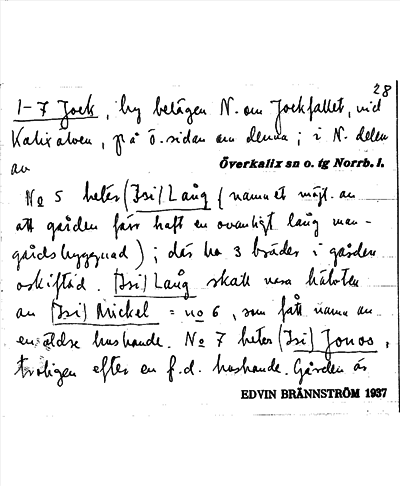 28
1-7 Jock, by belägen N. om Jockfallet, vid
Kalixälven, på ö. sidan om denna; i N. delen
av
Överkalix sn o. tg Norrb. l.
No 5 heter (Isi) Lång (namnet möjl. av
att gården förr haft en ovanligt lång man-
gårdsbyggnad); där ha 3 bröder i gården
oskiftad. (Isi) Lång skall vara hälvten
av (Isi) Mickel = no 6, som fått namn av
en äldre husbonde. No 7 heter (Isi) Jonos,
troligen efter en f.d. husbonde. Gården är
EDVIN BRÄNNSTRÖM 1937